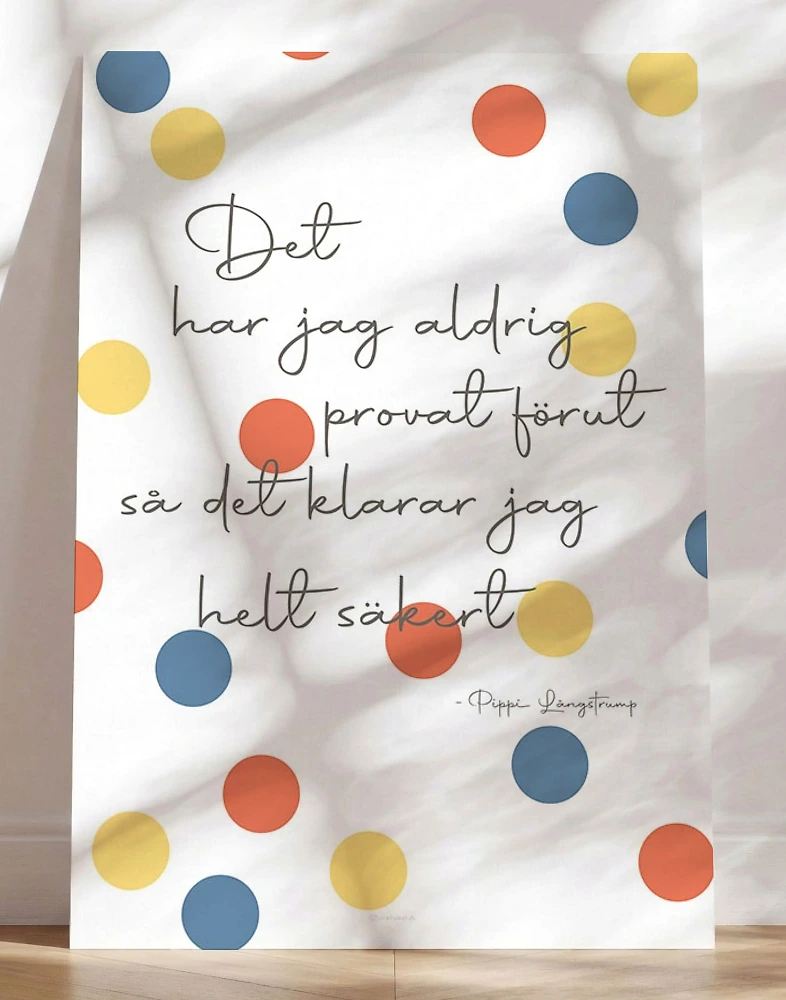 Det
har jag aldrig
provat förut
så det klarar jag
helt säkert
- Pippi Långstrump